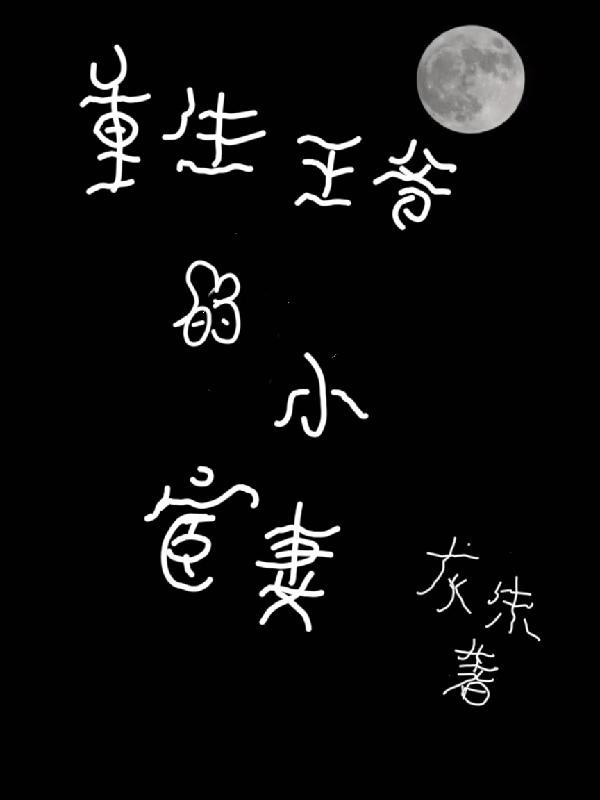 重生王爷
的
小
宦妻
灰朱
著